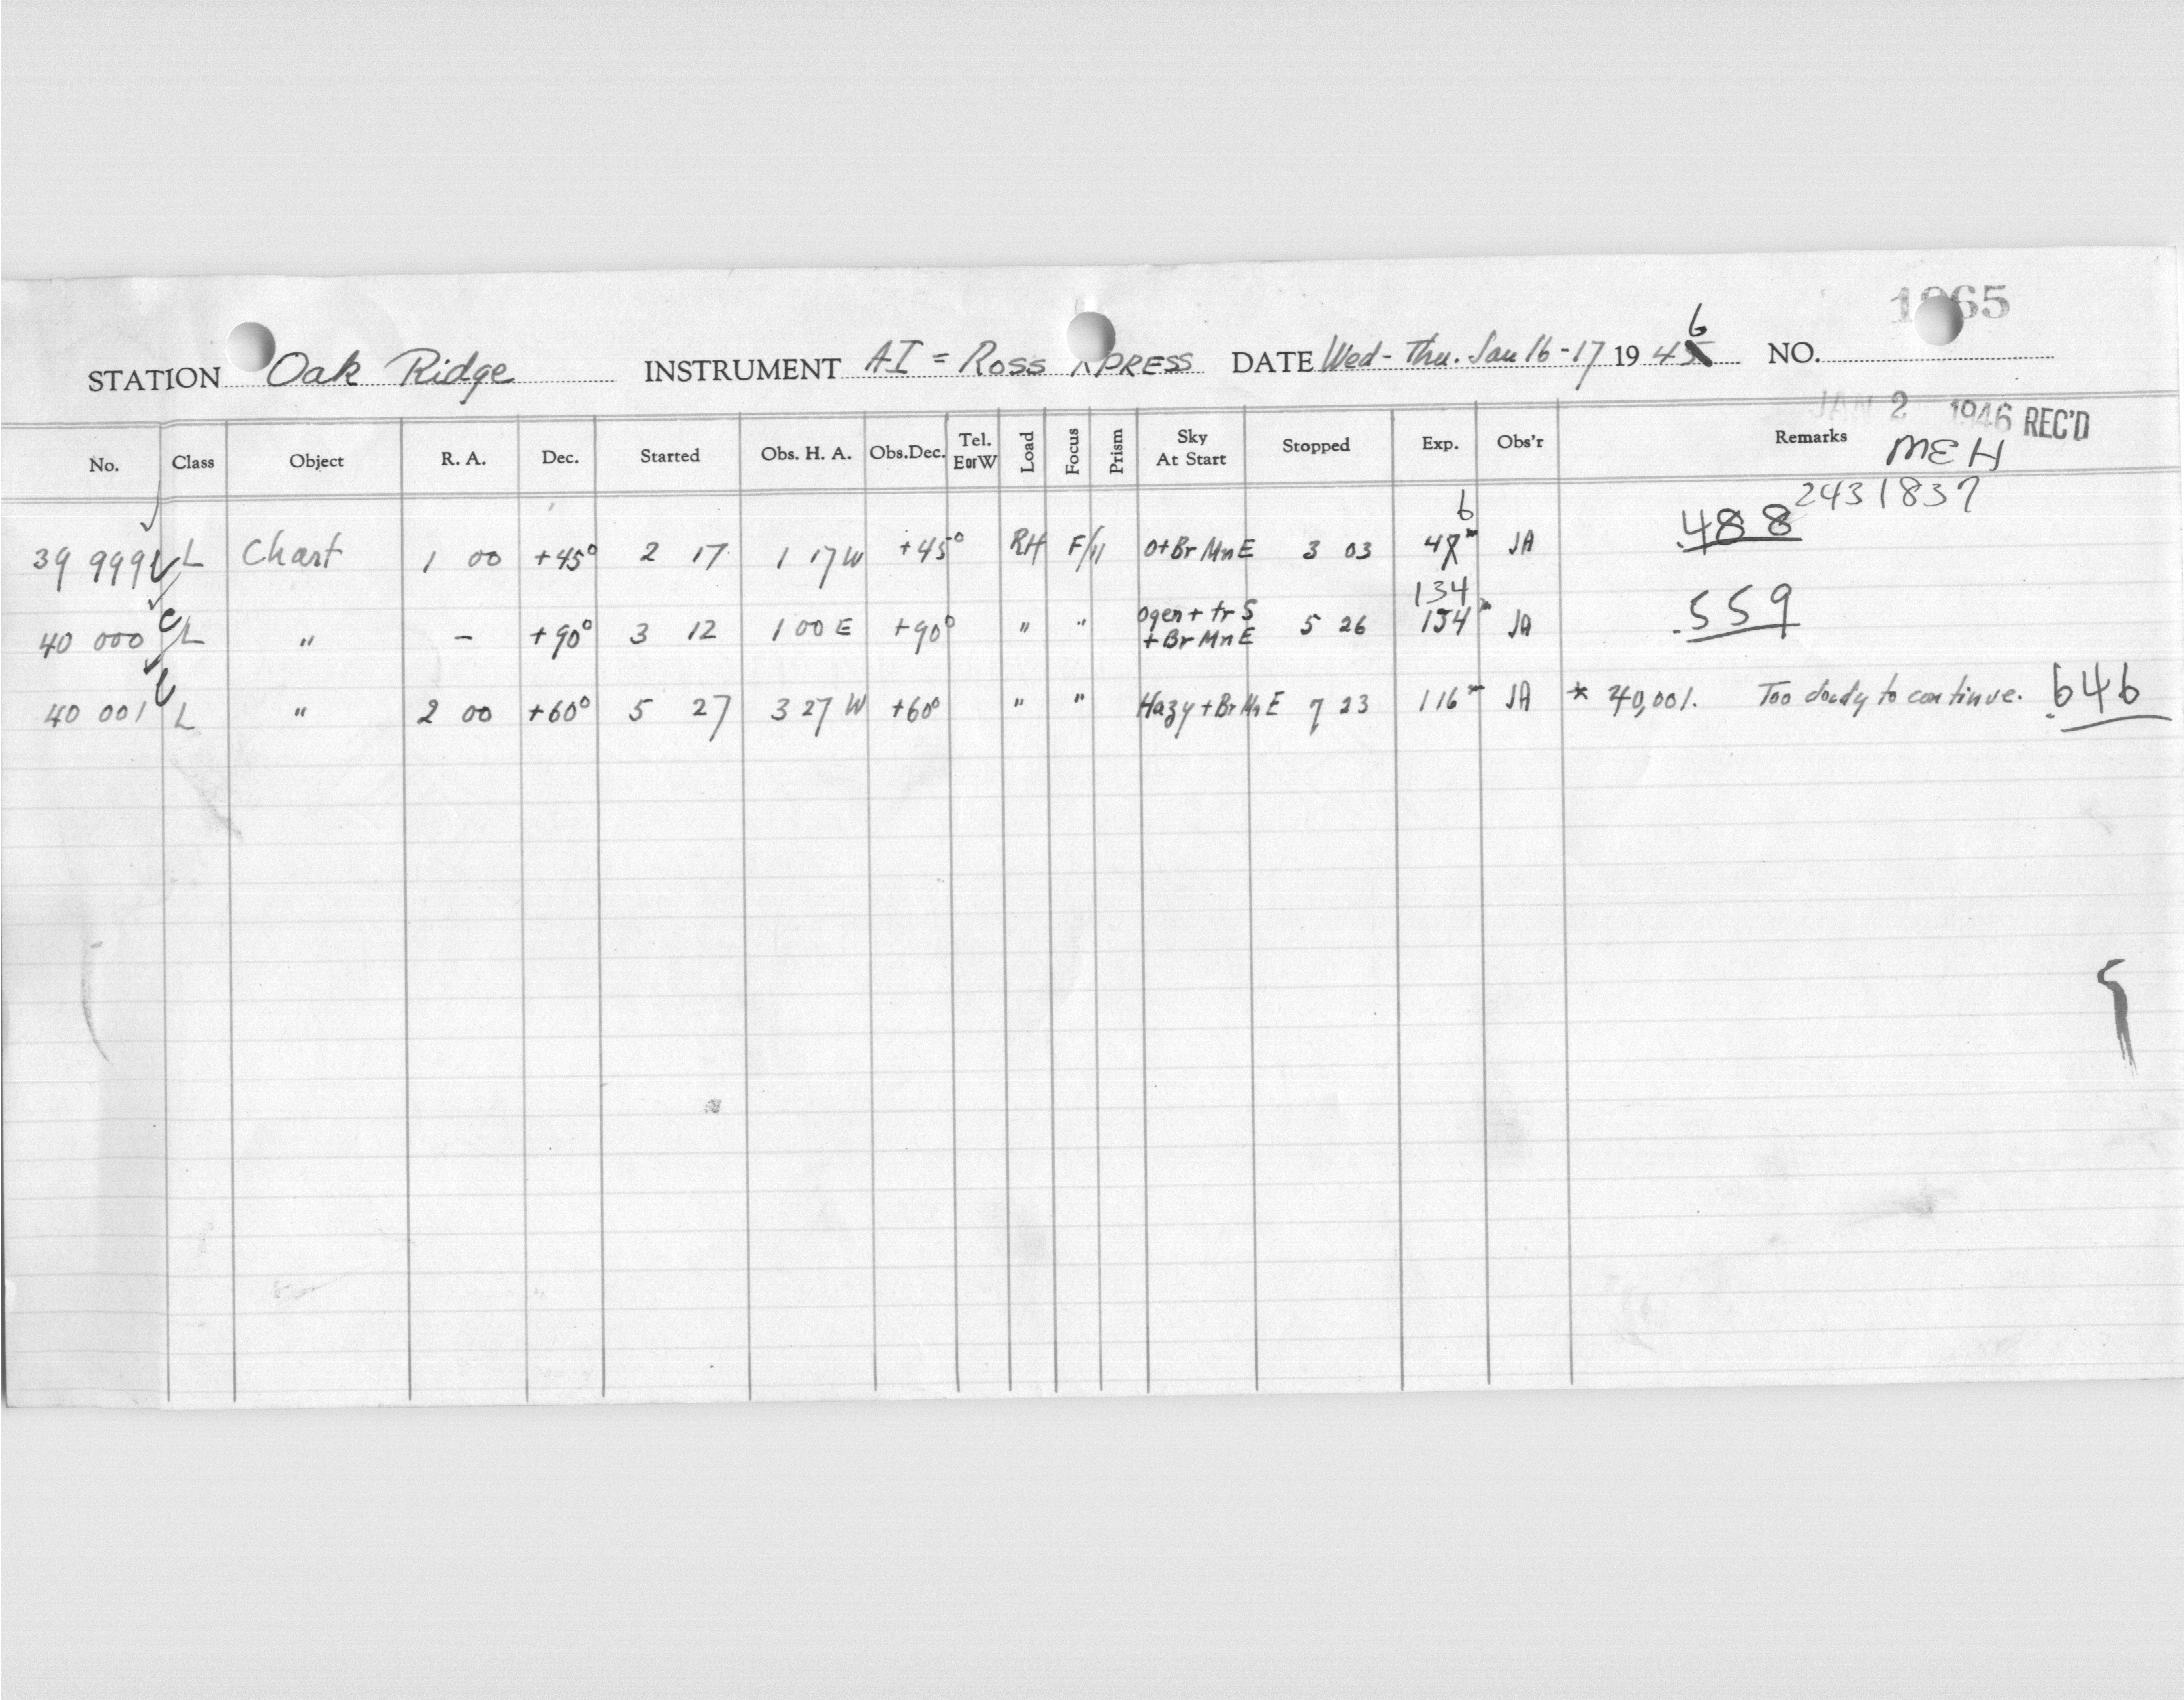 1965
STATION Oak Ridge INSTRUMENT AI = Ross XPRESS DATE Wed - Thu. Jan 16-17 1945 6 NO.
JAN 2 1946 REC'D
No. Class Object R. A. Dec. Started Obs. H. A. Obs.Dec. Tel. E or W Load Focus Prism Sky At Start Stopped Exp. Obs'r Remarks
MEH
2431837
39 999 L Chart 1 00 +45° 2 17 1 17 W +45° RH F/11 0+Br Mn E 3 03 48m 6 JA .488
40 000 L " - +90° 3 12 1 00 E +90° " " 0gen + tr S + Br Mn E 5 26 154m 134 JA .559
40 001 L " 2 00 +60° 5 27 3 27 W +60° " " Hazy + Br Mn E 7 23 116m JA * 40,001. Too cloudy to continue. .646